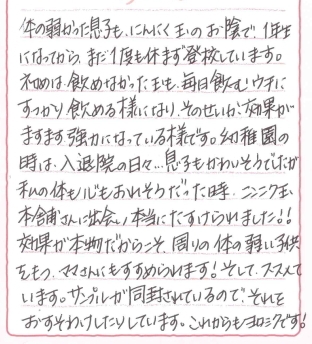 体の弱かった息子も、にんにく玉のお陰で、1年生
になってから、まだ1度も休まず登校しています。
初めは飲めなかった玉も、毎日飲むウチに
すっかり飲める様になり、そのせいか効果が
ますます強力になっている様です。幼稚園の
時は、入退院の日々…息子もかわいそうでしたが
私の体も心もおれそうだった時、ニンニク玉
本舗さんに出会い本当にたすけられました!!
効果が本物だからこそ、周りの体の弱い子供
をもつ、ママさんにもすすめられます!そして、ススメて
います。サンプルが同封されているので、それを
おすそわけしたりしています。これからもヨロシクです!